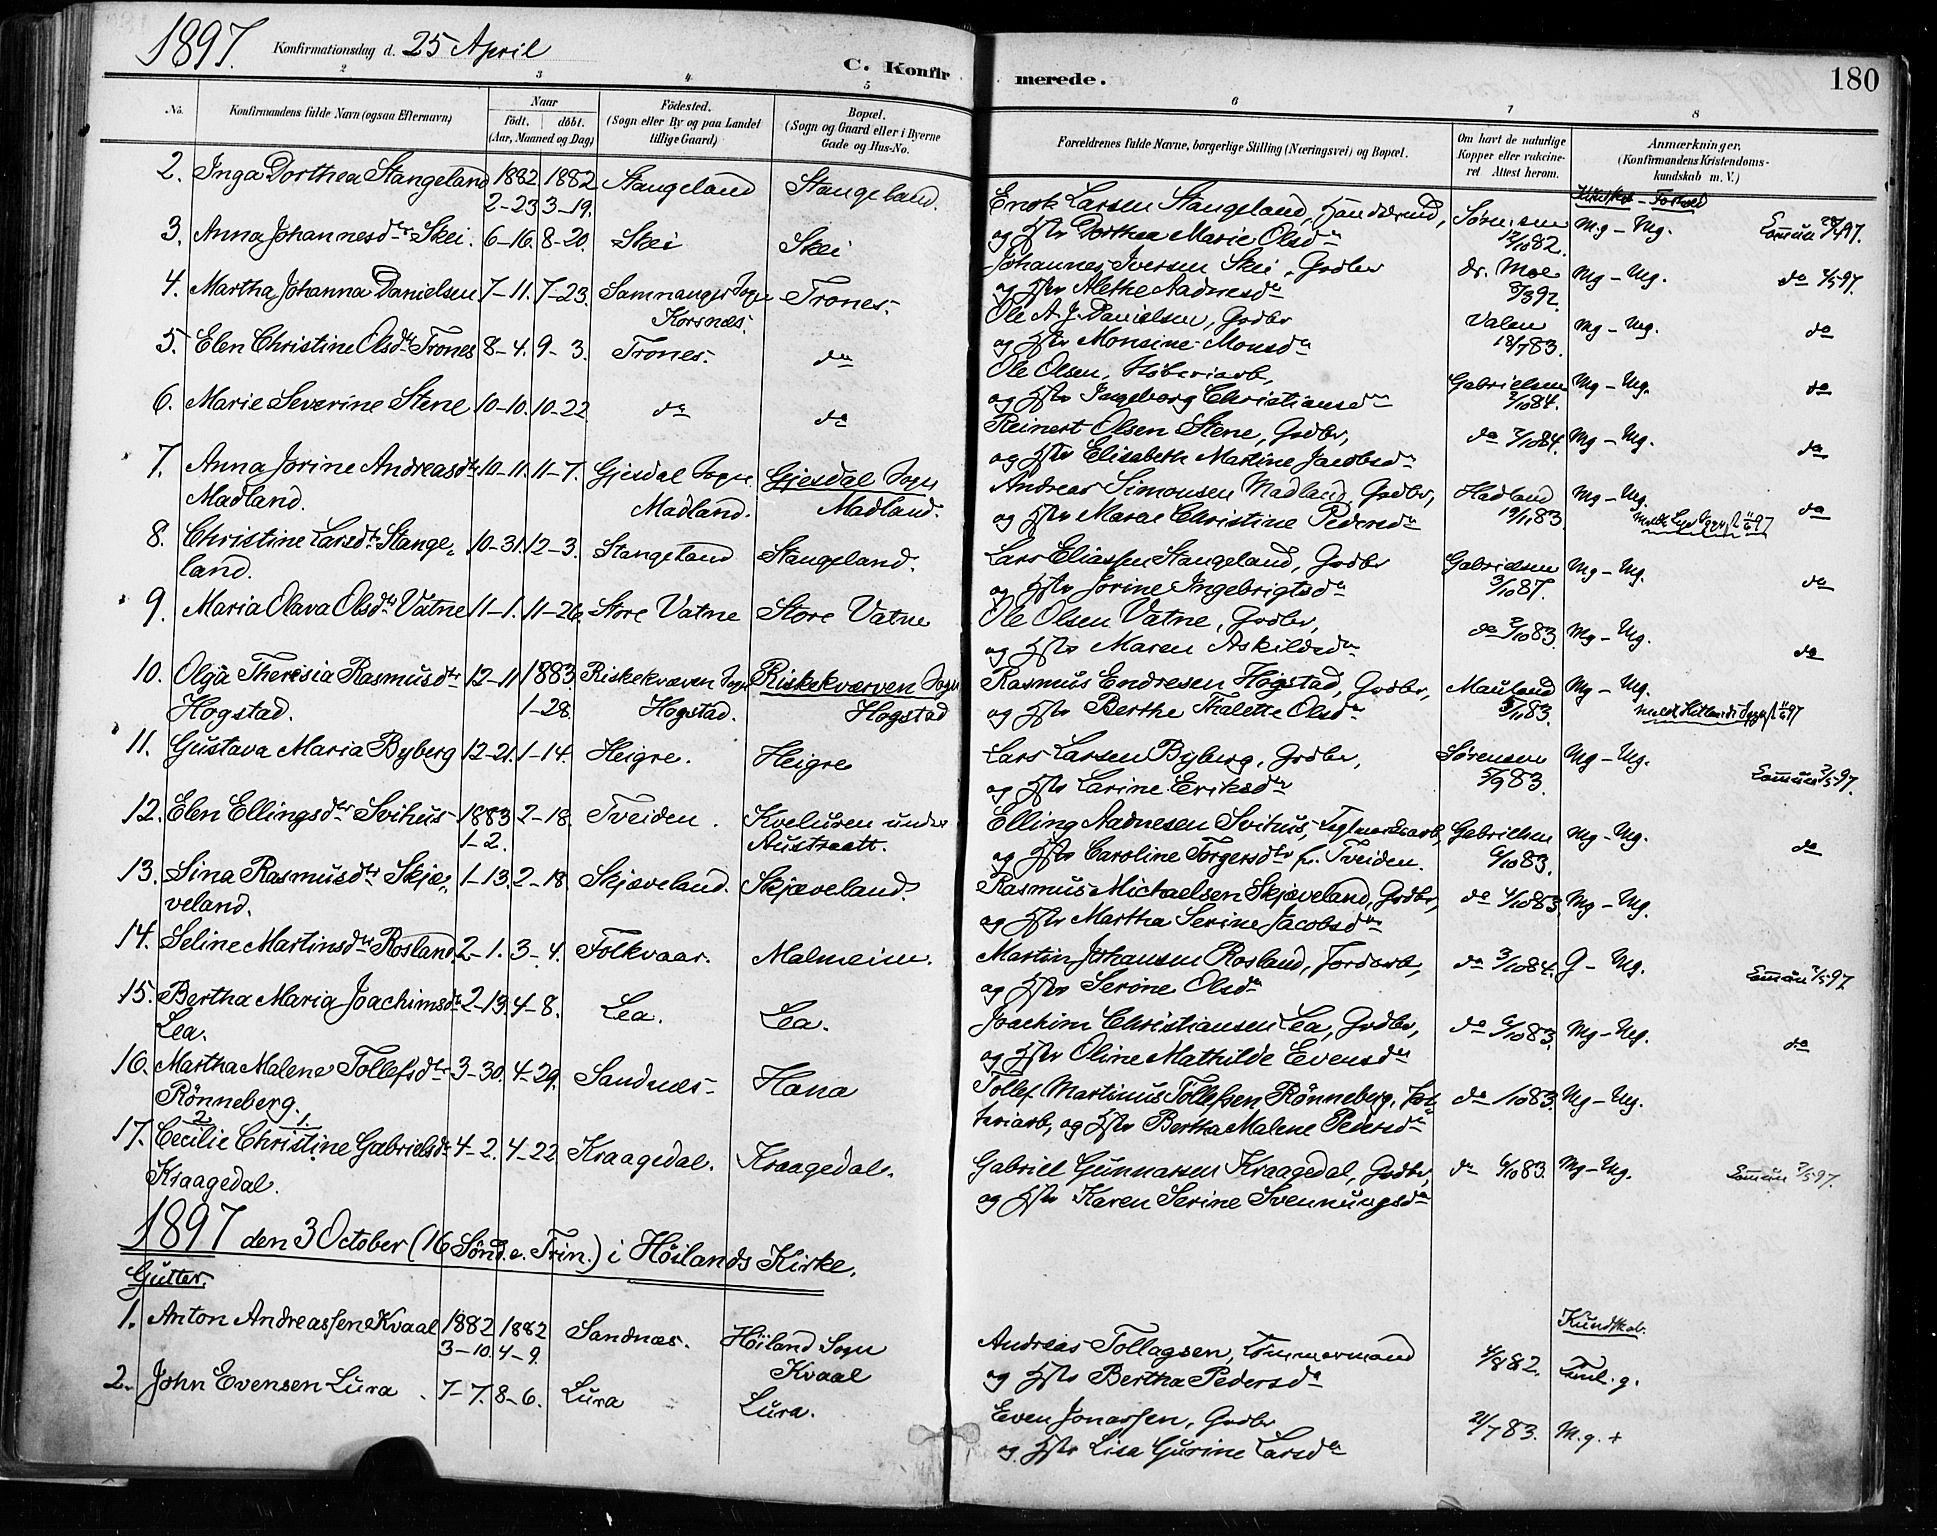 1897. Konfirmationsdag d. 25 April
C. Konfirmerede. 180
2 3 4 5 6 7 8
No. Konfirmandens fulde Navn (ogsaa Efternavn) Naar födt. döbt. (Aar, Maaned og Dag) Födested. (Sogn eller By og paa Landet tillige Gaard) Bopæl. (Sogn og Gaard eller i Byerne Gade og Hus-No. Forældrenes fulde Navne, borgerlige Stilling (Næringsvei) og Bopæl. Om havt de naturlige Kopper eller vakcineret Attest herom. Anmærkninger, (Konfirmandens Kristendomskundskab m. V.)
2. Inga Dorthea Stangeland 1882 2-23 1882 3-19. Stangeland Stangeland.
Enok Larsen Stangeland,
og Hstr Dorthea Marie Olsdr 12/10 82. Mg - Mg.
3. Anna Johannesdtr Skei. 6-16. 8-20. Skei Skei
Johannes Iversen Skei, Grdbr dr. Moe
og Hstr Alethe Aadnesdr 8/3 92. Mg - Mg. do
4. Martha Johanna Danielsen 7-11. 7-23. Samnanger Sogn Korsnæs. Trones.
Ole A. J. Danielsen, Grdbr Valen
og Hstr Monsine Monsdr 18/7 83. Mg - Mg. do
5. Elen Christine Olsdtr Trones 8-4. 9-3. Trones. do
Ole Olsen,
og Hstr Ingeborg Christiansdr Gabrielsen 2/10 84. Mg - Mg. do
6. Marie Severine Stene 10-10. 10-22 do do
Reinert Olsen Stene, Grdbr,
og Hstr Elisabeth Martine Jacobsdr do 2/10 84. Mg - Mg. do
7. Anna Jorine Andreasdtr Madland. 10-11. 11-7. Gjesdal Sogn Madland. Gjesdal Sogn Madland.
Andreas Simonsen Madland, Grdbr, Hadland
og Hstr Maroe Christine Pedersdr 19/11 83. Mg - Mg. do
8. Christine Larsdtr Stangeland. 10-31. 12-3. Stangeland Stangeland.
Lars Eliassen Stangeland, Grdbr Gabrielsen
og Hstr Jorine Ingebrigtsdr 3/10 87. Mg - Mg. do
9. Maria Olava Olsdtr Vatne 11-1. 11-26. Store Vatne Store Vatne
Ole Olsen Vatne, Grdbr,
og Hstr Maren Askildsdr do 2/10 83. Mg - Mg. do
10. Olga Theresia Rasmusdtr Hogstad. 12-11 1883. 1-28. Riskekværven Sogn Hogstad. Riskekværven Sogn Hogstad
Rasmus Endresen Hogstad, Grdbr, Mauland
og Hstr Berthe Thalette Olsdr Mg - Mg.
11. Gustava Maria Byberg 12-21. 1-14. Heigre. Heigre
Lars Larsen Byberg, Grdbr, Sørensen
og Hstr Larine Eriksdtr 5/9 83. Mg - Mg.
12. Elen Ellingsdtr Svihus 1883 1-2. 2-18. Tveiden. Kveluren under Austraatt.
Elling Aadnesen Svihus, Gabrielsen
og Hstr Caroline Torgersdtr f. Tveiden. 6/10 83. Mg - Mg. do
13. Sina Rasmusdtr Skjæveland. 1-13. 2-18. Skjæveland. Skjæveland.
Rasmus Michaelsen Skjæveland, Grdbr,
og Hstr Martha Serine Jacobsdtr do 4/10 83. Mg - Mg.
14. Seline Martinsdtr Rosland. 2-1. 3-4. Folkvaar. Malmeim.
Martin Johansen Rosland,
og Hstr Serine Olsdr do 3/10 84. G - Mg.
15. Bertha Maria Joachimsdr Lea. 2-13. 4-8. Lea. Lea.
Joachim Christiansen Lea, Grdbr,
og Hstr Oline Mathilde Evensdtr do 6/10 83. Mg - Mg. do
16. Martha Malene Tollefsdtr Rönneberg. 3-30. 4-29. Sandnæs Hana
Tollef Martinus Tollefsen Rönneberg, Pot-
teriarb, og Hstr Bertha Malene Pedersdr do 1083. Mg - Mg.
2. 1.
17. Cecilie Christine Gabrielsdr Kraagedal. 4-2. 4-22. Kraagedal. Kraagedal.
Gabriel Gunnarsen Kraagedal, Grdbr,
og Hstr Karen Serine Svennungsdr do 6/10 83. Mg - Mg.
1897 den 3 October (16 Sönd. e. Trin.) i Höilands Kirke.
Gutter.
1. Anton Andreassen Kvaal 1882 3-10. 1882 4-9. Sandnæs. Höiland Sogn Kvaal
Andreas Tollagsen, Tømmermand Kundskab.
og Hstr Bertha Pedersdr 4/8 82.
2. John Evensen Lura 7-7. 8-6. Lura Lura.
Even Jonassen, Grdbr
og Hstr Lisa Gurine Larsdr 21/7 83. M.g. +